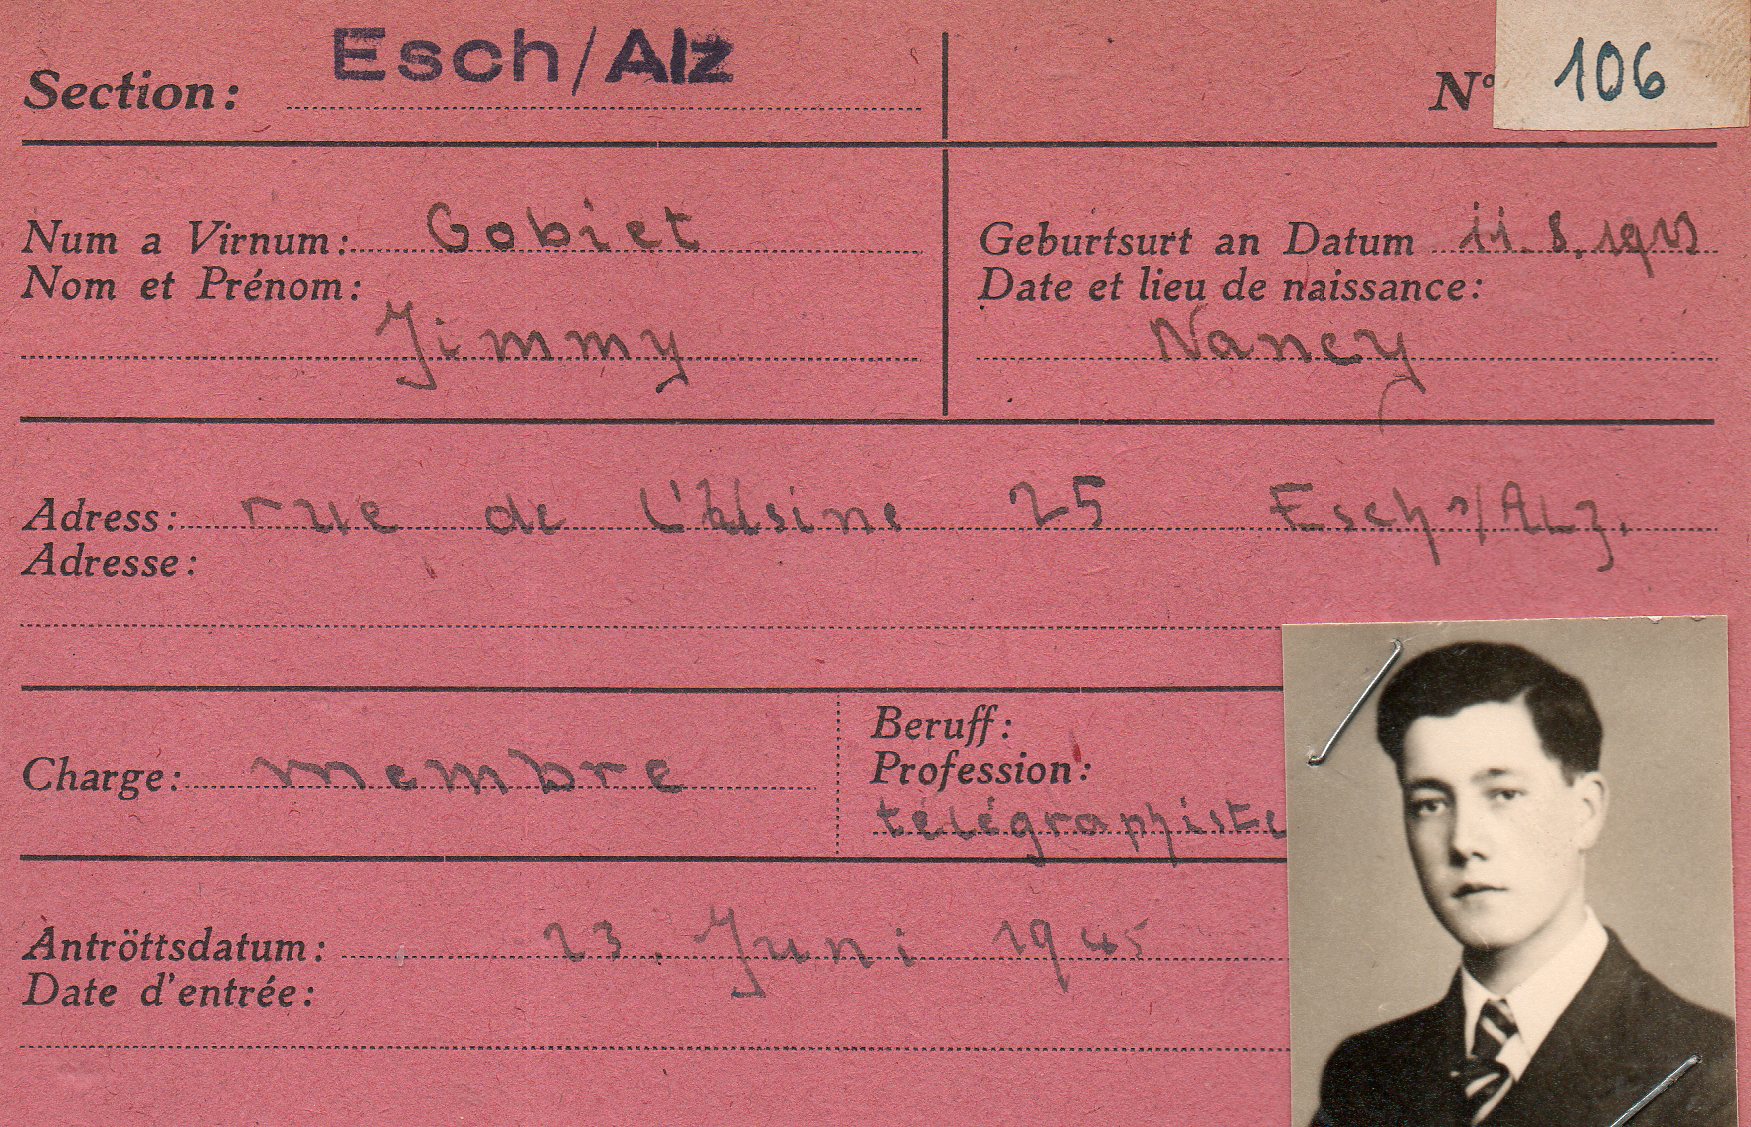 Section: Esch/Alz N° 106
Num a Virnum: Gobiet
Nom et Prénom:
Jimmy
Geburtsurt an Datum 11.8.1923
Date et lieu de naissance:
Nancy
Adress: rue de l'Usine 25 Esch s/Alz.
Adresse:
Charge: membre
Beruff:
Profession:
télégraphiste
Antröttsdatum: 23. Juni 1945
Date d'entrée: